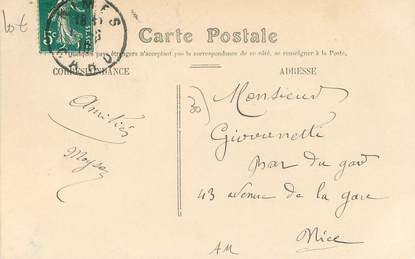 lot
5c
Carte Postale
Quelques pays étrangers n'acceptent pas la correspondance de ce côté, se renseigner à la Poste.
CORRESPONDANCE
ADRESSE
Amitiés
30
Monsieur
Giovanetti
Bar du gaz
43 avenue de la gare
Nice
AM